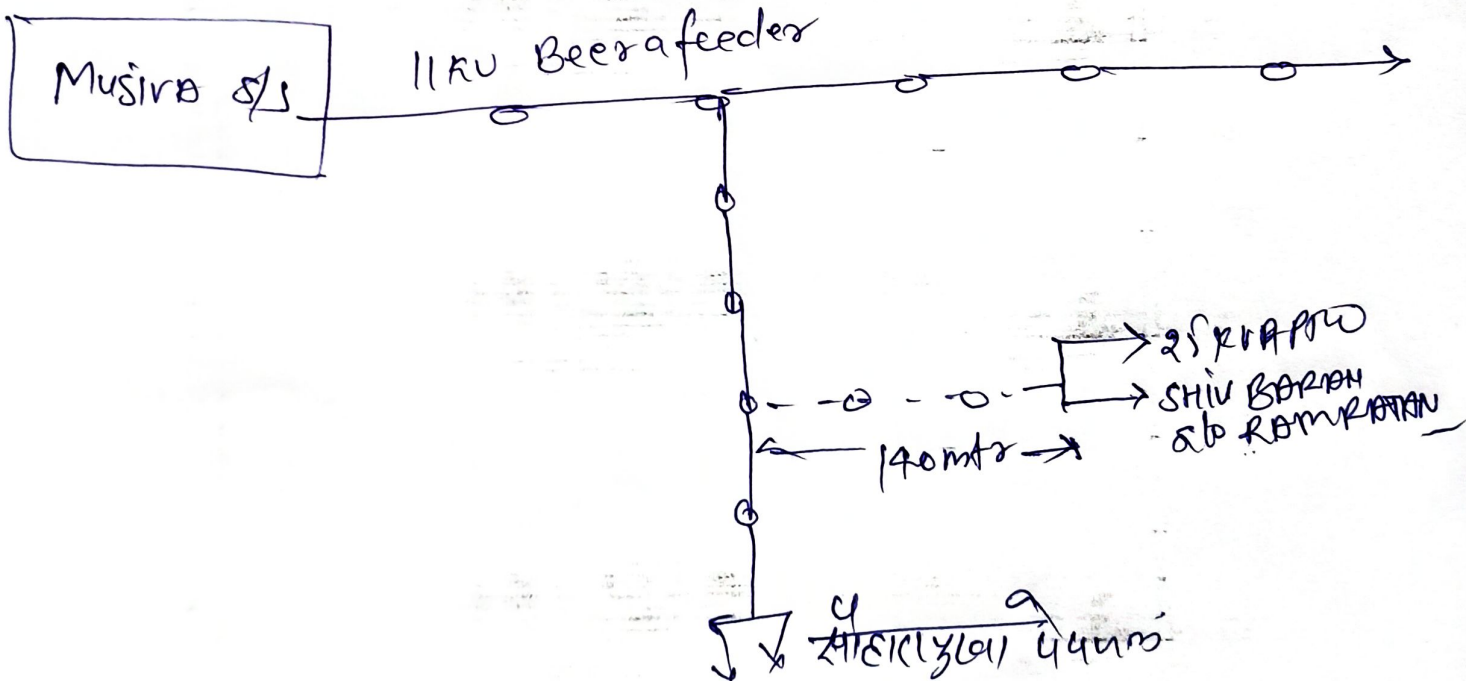 Musira S/S
11KV Beera feeder
25 KVA
SHIV BARAN
S/o RAMRATAN
140 mtr